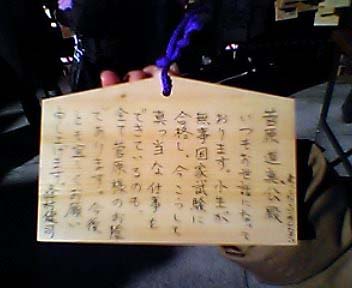 菅原道真公殿
いつもお世話になって
おります。小生が
無事国家試験に
合格し、今こうして
真っ当な仕事を
できているのも
全て菅原様のお陰
であります。今後
とも宜しくお願い
申し上げます。